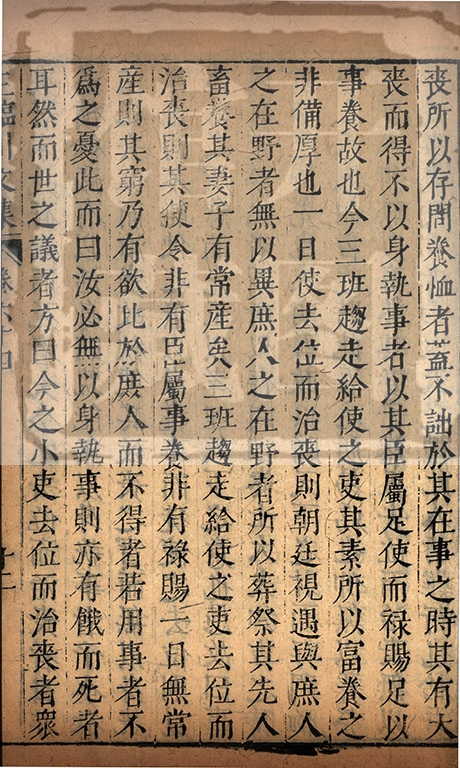 喪所以存問養恤者蓋不詘於其在事之時其有大
喪而得不以身執事者以其臣屬足使而祿賜足以
事養故也今三班趨走給使之吏其素所以富養之
非備厚也一日使去位而治喪則朝廷視遇與庶人
之在野者無以異庶人之在野者所以葬祭其先人
畜養其妻子有常產矣三班趨走給使之吏去位而
治喪則其使令非有臣屬事養非有祿賜一日無常
產則其窮乃有欲比於庶人而不得者若用事者不
爲之憂此而曰汝必無以身執事則亦有餓而死者
耳然而世之議者方曰今之小吏去位而治喪者衆
王臨川文集 卷六十四 十一